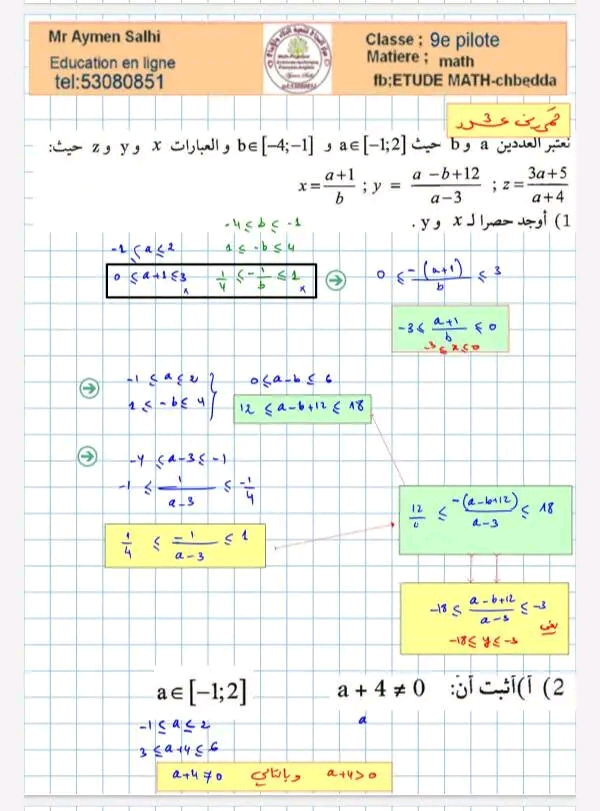 Mr Aymen Salhi
Education en ligne
tel:53080851
Classe ; 9e pilote
Matiere ; math
fb;ETUDE MATH-chbedda
تمرين عـ3ـدد
نعتبر العددين a و b حيث a∈[−1;2] و b∈[−4;−1] و العبارات x و y و z حيث:
x = (a+1)/b ; y = (a −b+12)/(a−3) ; z = (3a+5)/(a+4)
1) أوجد حصرا لـ x و y .
-4 ≤ b ≤ -1
-1 ≤ a ≤ 2 1 ≤ -b ≤ 4
0 ≤ a+1 ≤ 3 1/4 ≤ -1/b ≤ 1 0 ≤ -(a+1)/b ≤ 3
-3 ≤ (a+1)/b ≤ 0
-3 ≤ x ≤ 0
-1 ≤ a ≤ 2 0 ≤ a-b ≤ 6
1 ≤ -b ≤ 4 12 ≤ a-b+12 ≤ 18
-4 ≤ a-3 ≤ -1
-1 ≤ 1/(a-3) ≤ -1/4
12/4 ≤ -(a-b+12)/(a-3) ≤ 18
1/4 ≤ -1/(a-3) ≤ 1
-18 ≤ (a-b+12)/(a-3) ≤ -3
يعني
-18 ≤ y ≤ -3
2) أ) أثبت أنّ: a + 4 ≠ 0 a∈[−1;2]
a
-1 ≤ a ≤ 2
3 ≤ a+4 ≤ 6
a+4>0 وبالتالي a+4≠0